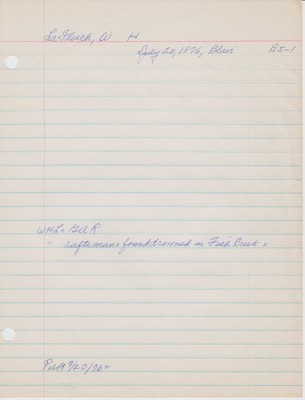 La Flesch, W H
July 20, 1876, Blair B5-1
WHL = GAR
" raftsman = found drowned in Fish Creek =
Pilot 7/20/76 =